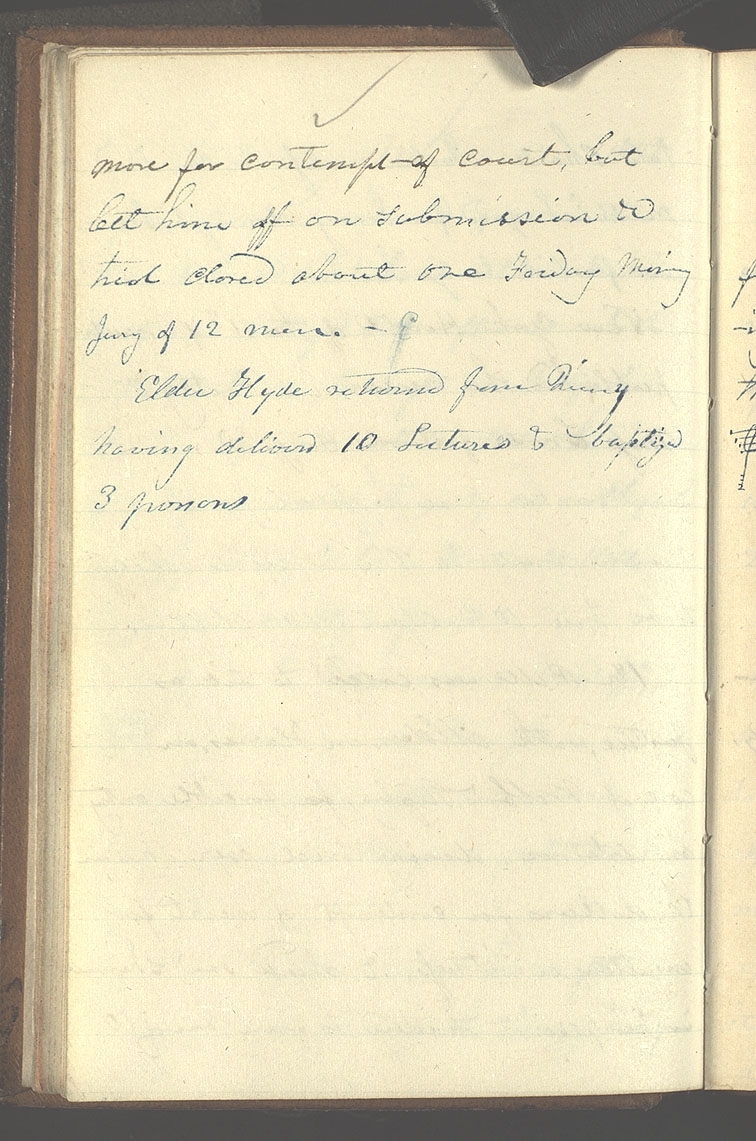 more for contempt of court, but
let him off on submission &
trial closed about one Friday Mornig
Jury of 12 men. –
Elder Hyde returned from Quincy
having deliverd 10 Lectures & baptizd
3 persons